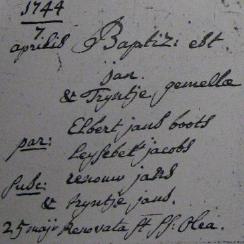 1744
7.
aprilis Baptiz: est
jan.
& Tryntje, gemellæ
par: Elbert jans boots
Leysebet jacobs
susc: renouw jans
& tryntje jans.
25 maji Renovata st ss: olea.